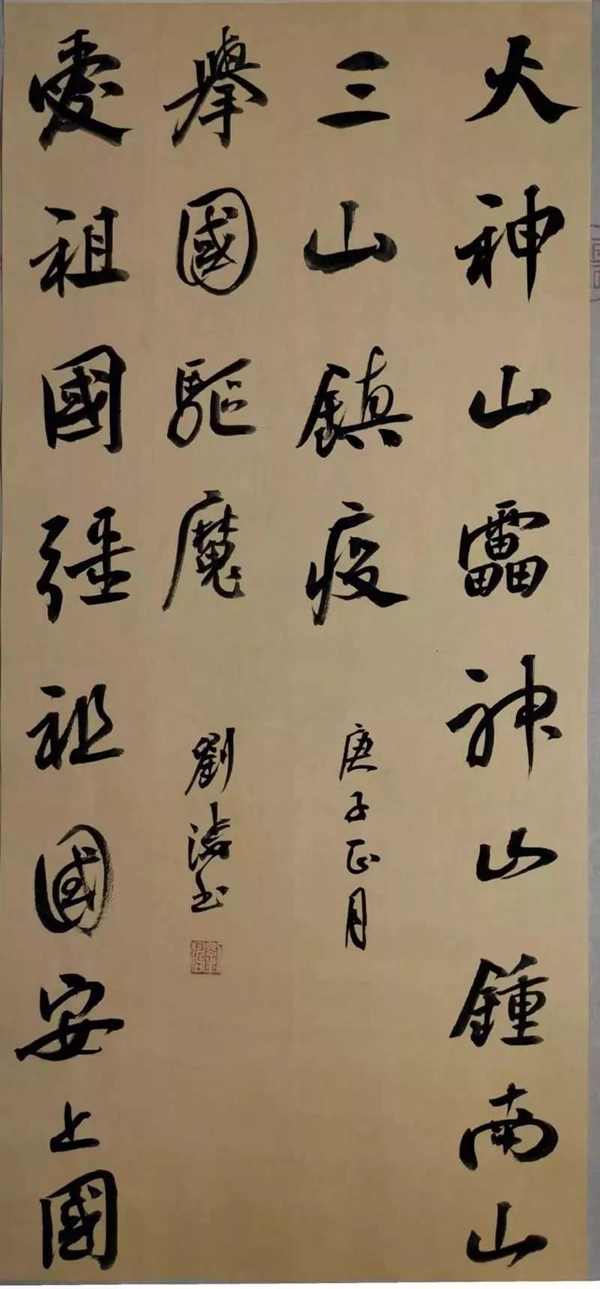 火神山靁神山鍾南山
三山鎮疫
庚子正月
舉國驅魔
劉濤书
愛祖國彊祖國安上國